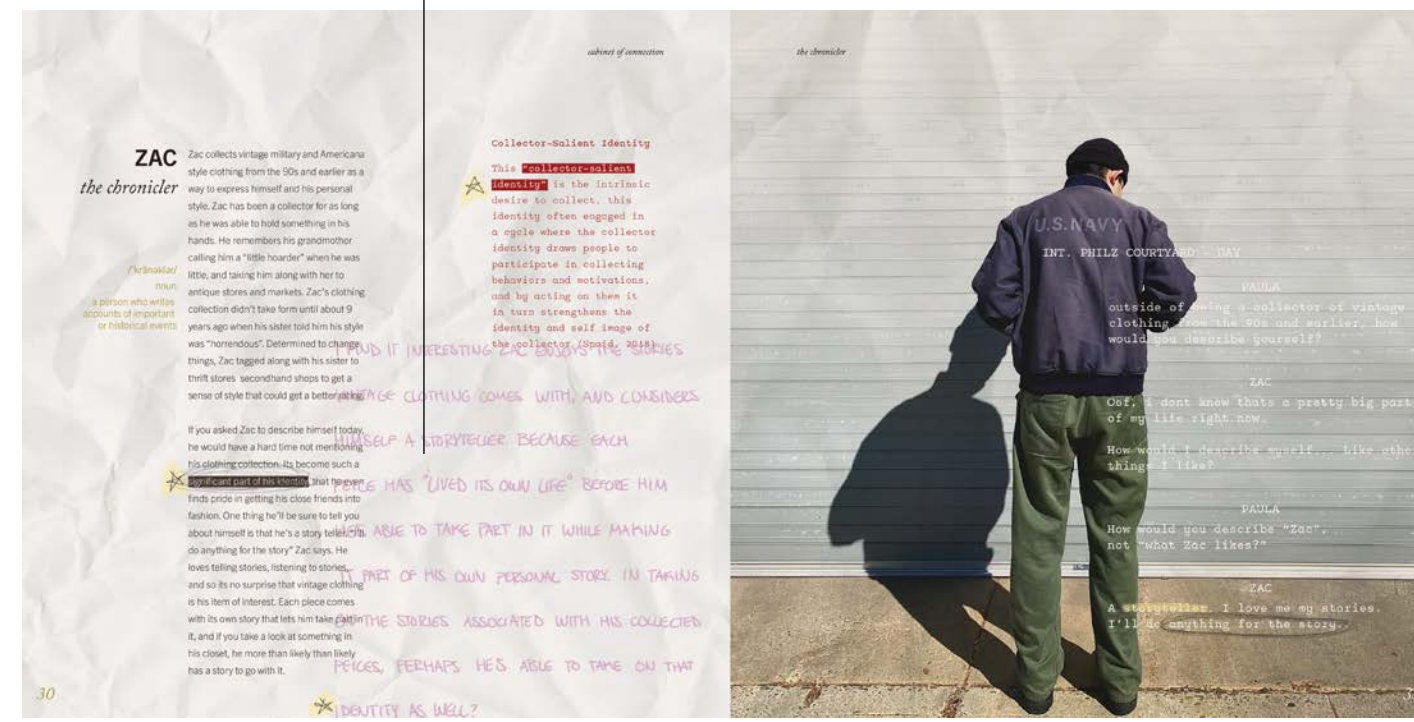 cabinet of connection
the chronicler
ZAC
the chronicler
/ˈkränək(ə)lər/
noun
a person who writes
accounts of important
or historical events
Zac collects vintage military and Americana
style clothing from the 90s and earlier as a
way to express himself and his personal
style. Zac has been a collector for as long
as he was able to hold something in his
hands. He remembers his grandmother
calling him a "little hoarder" when he was
little, and taking him along with her to
antique stores and markets. Zac's clothing
collection didn't take form until about 9
years ago when his sister told him his style
was "horrendous". Determined to change
things, Zac tagged along with his sister to
thrift stores secondhand shops to get a
sense of style that could get a better rating.
If you asked Zac to describe himself today,
he would have a hard time not mentioning
his clothing collection. Its become such a
significant part of his identity, that he even
finds pride in getting his close friends into
fashion. One thing he'll be sure to tell you
about himself is that he's a story teller.
do anything for the story" Zac says. He
loves telling stories, listening to stories,
and so its no surprise that vintage clothing
is his item of interest. Each piece comes
with its own story that lets him take part in
it, and if you take a look at something in
his closet, he more than likely than likely
has a story to go with it.
Collector-Salient Identity
This "collector-salient
identity" is the intrinsic
desire to collect, this
identity often engaged in
a cycle where the collector
identity draws people to
participate in collecting
behaviors and motivations,
and by acting on them it
in turn strengthens the
identity and self image of
the collector (Spaid, 2018).
I FIND IT INTERESTING ZAC ENJOYS THE STORIES
VINTAGE CLOTHING COMES WITH, AND CONSIDERS
HIMSELF A STORYTELLER BECAUSE EACH
PEICE HAS "LIVED ITS OWN LIFE" BEFORE HIM
HES ABLE TO TAKE PART IN IT WHILE MAKING
IT PART OF HIS OWN PERSONAL STORY. IN TAKING
THE STORIES ASSOCIATED WITH HIS COLLECTED
PEICES, PERHAPS HE'S ABLE TO TAKE ON THAT
IDENTITY AS WELL?
30
U.S. NAVY
INT. PHILZ COURTYARD - DAY
PAULA
outside of being a collector of vintage
clothing from the 90s and earlier, how
would you describe yourself?
ZAC
Oof, i dont know thats a pretty big part
of my life right now.
How would I describe myself... Like othe
things I like?
PAULA
How would you describe "Zac",
not "what Zac likes?"
ZAC
A storyteller. I love me my stories.
I'll do anything for the story.